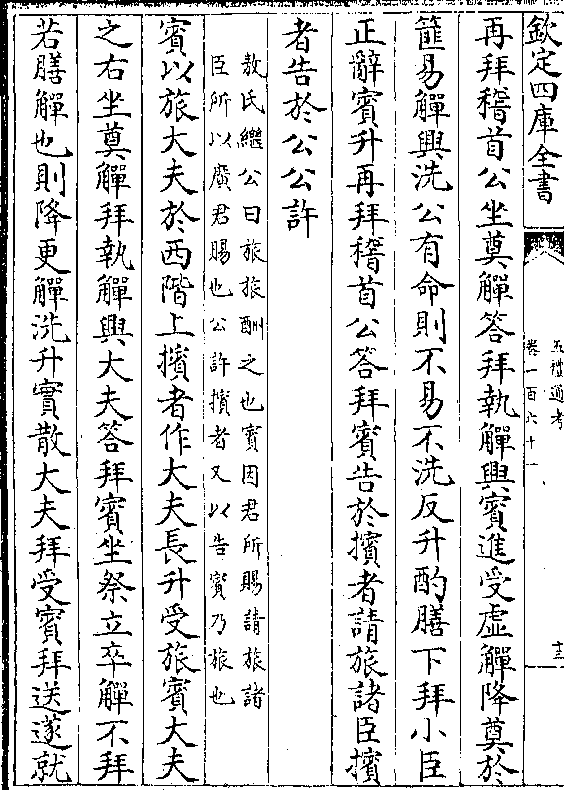 欽定四庫全書
五禮通考
卷一百六十一
十三
再拜稽首公坐奠觶答拜執觶興賓進受虛觶降奠於
篚易觶興洗公有命則不易不洗反升酌膳下拜小臣
正辭賓升再拜稽首公答拜賓告於擯者請旅諸臣擯
者告於公公許
敖氏繼公曰旅旅酬之也賓因君所賜請旅諸
臣所以廣君賜也公許擯者又以告賓乃旅也
賓以旅大夫於西階上擯者作大夫長升受旅賓大夫
之右坐奠觶拜執觶興大夫答拜賓坐祭立卒觶不拜
若膳觶也則降更觶洗升實散大夫拜受賓拜送遂就